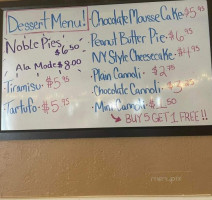 Dessert Menu!
Noble Pies
$6.50
Ala Mode $8.00
·Tiramisu · $5.95
·Tartufo · $5.75
·Chocolate Mousse Cake · $5.95
·Peanut Butter Pie · $6.95
·NY Style Cheesecake · $4.95
·Plain Cannoli · $2.75
·Chocolate Cannoli ·
·Mini Cannoli ·
BUY 5 GET 1 FREE!!